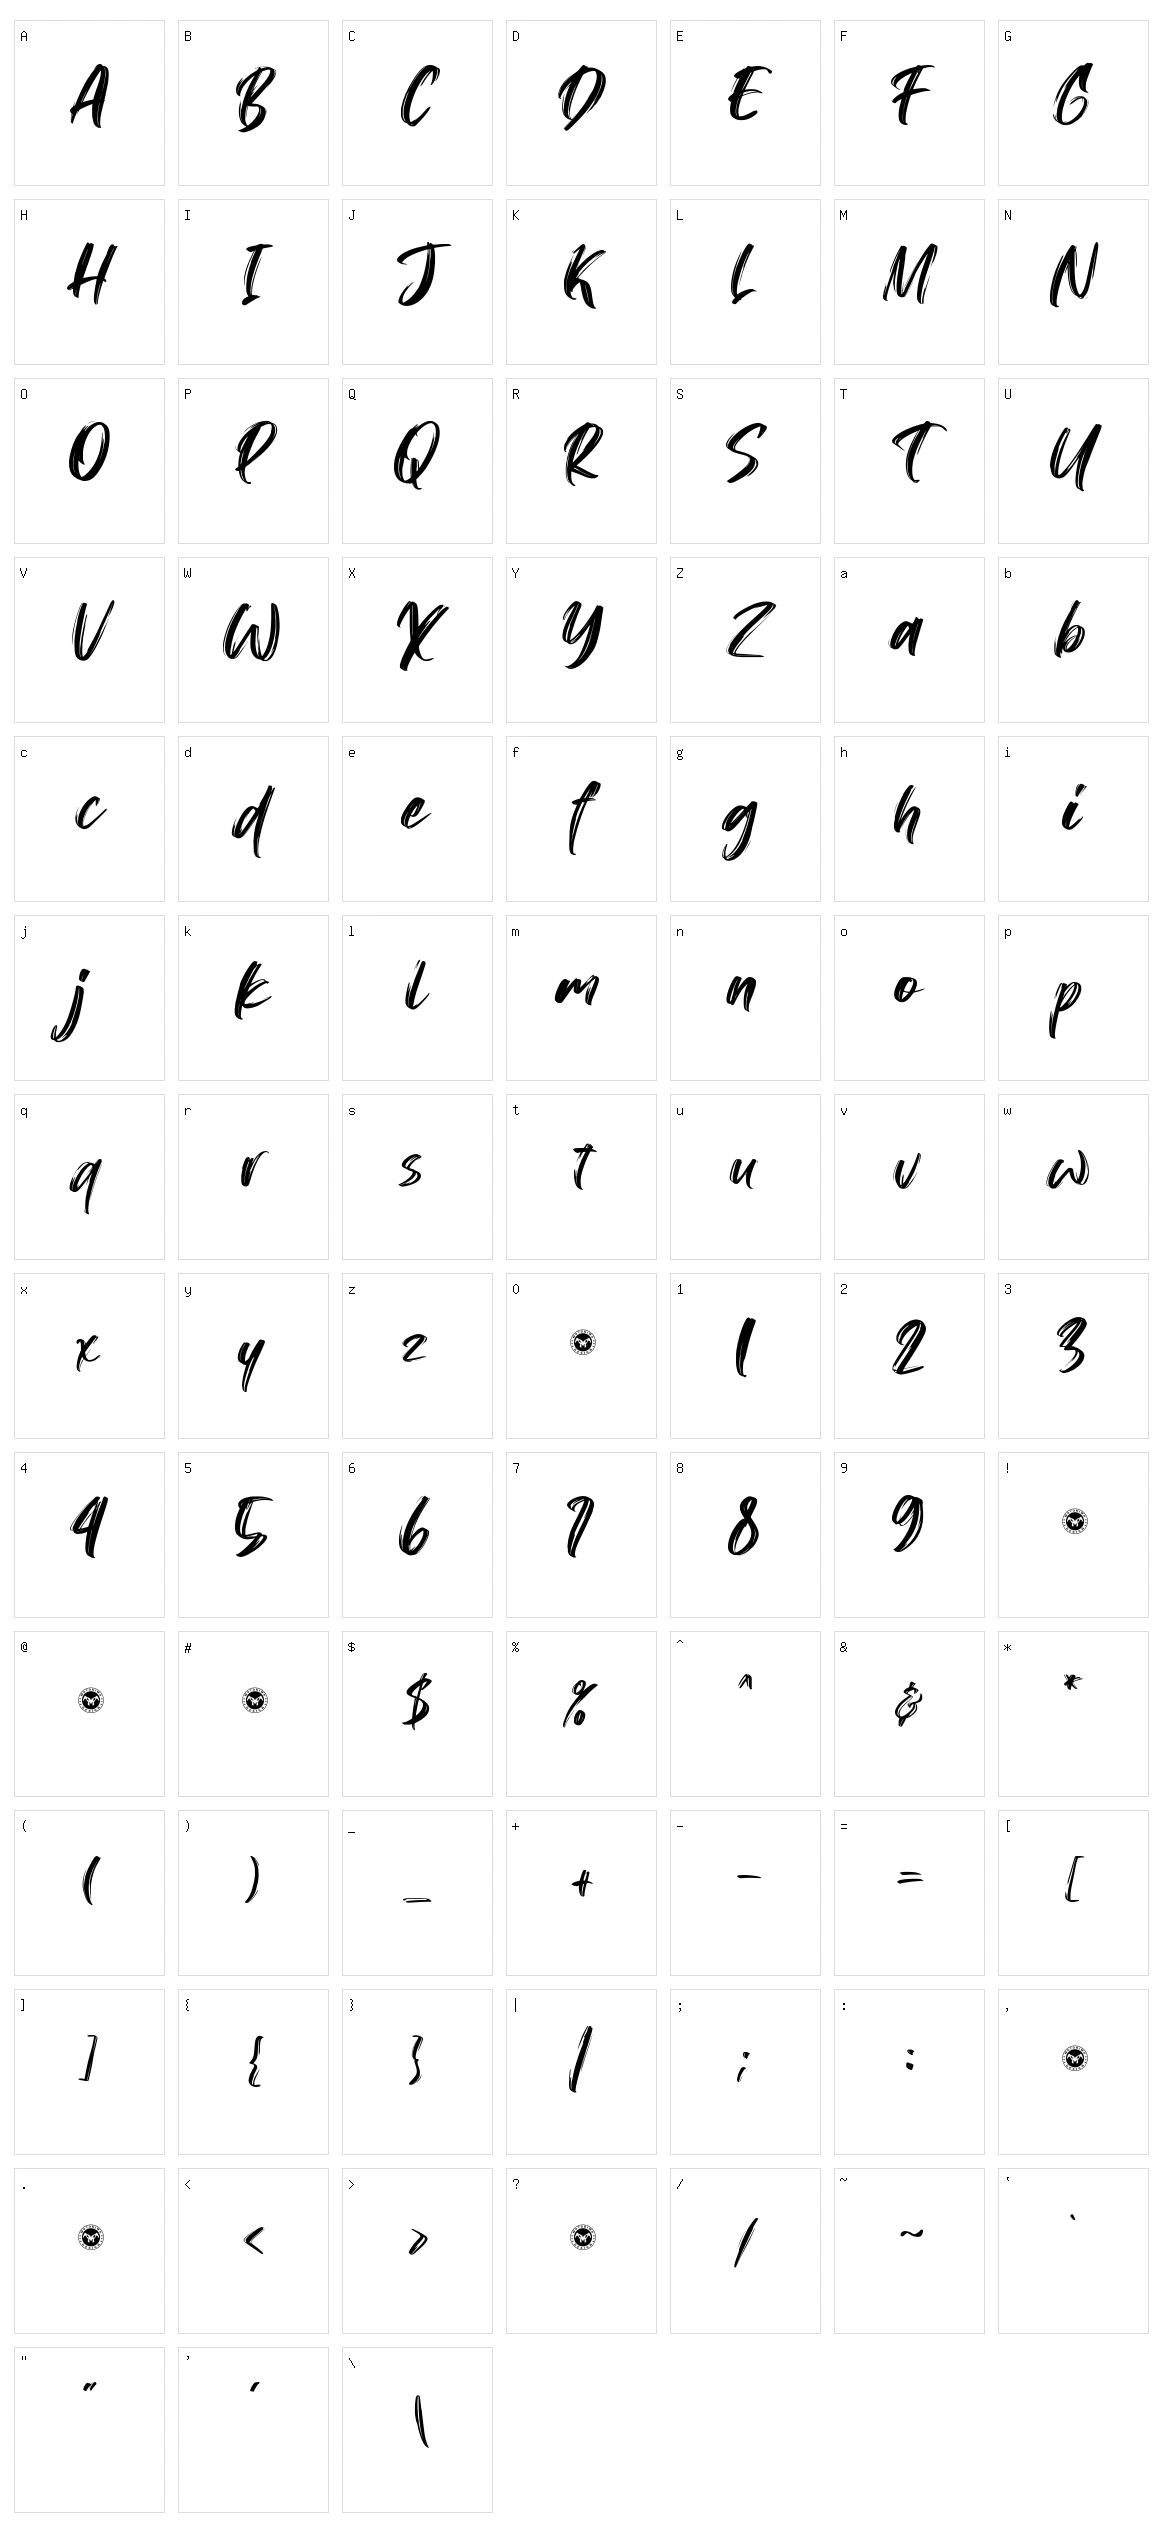 A B C D E F G
A B C D E F G
H I J K L M N
H I J K L M N
O P Q R S T U
O P Q R S T U
V W X Y Z a b
V W X Y Z a b
c d e f g h i
c d e f g h i
j k l m n o p
j k l m n o p
q r s t u v w
q r s t u v w
x y z 0 1 2 3
x y z 1 2 3
4 5 6 7 8 9 !
4 5 6 7 8 9
@ # $ % ^ & *
$ % ^ & *
( ) _ + - = [
( ) _ + - = [
] { } | ; : ,
] { } | ; :
. < > ? / ~ `
< > / ~ `
" ' \
" ' \